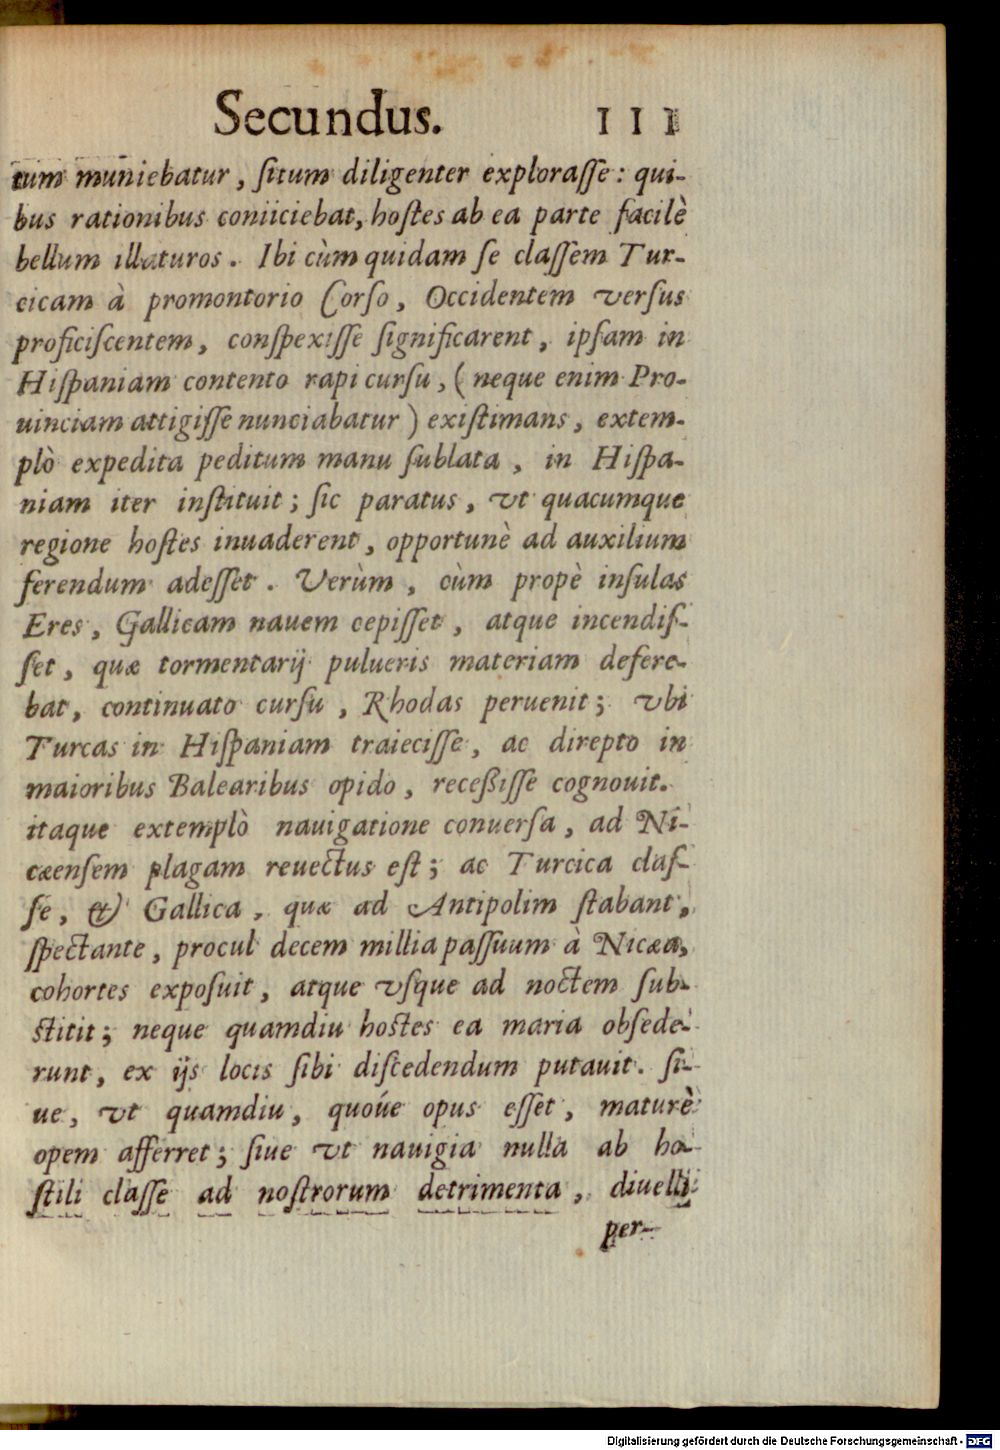 Secundus. 111
tum muniebatur, ſitum diligenter exploraſſe: qui-
bus rationibus coniiciebat, hoſtes ab ea parte facilè
bellum illaturos. Ibi cùm quidam ſe claſſem Tur-
cicam à promontorio Corſo, Occidentem verſus
proficiſcentem, conſpexiſſe ſignificarent, ipſam in
Hiſpaniam contento rapi curſu, (neque enim Pro-
uinciam attigiſſe nunciabatur) exiſtimans, extem-
plò expedita peditum manu ſublata, in Hiſpa-
niam iter inſtituit; ſic paratus, vt quacumque
regione hoſtes inuaderent, opportunè ad auxilium
ferendum adeſſet. Verùm, cùm propè inſulas
Eres, Gallicam nauem cepiſſet, atque incendiſ-
ſet, quæ tormentarij pulueris materiam defere-
bat, continuato curſu, Rhodas peruenit; vbi
Turcas in Hiſpaniam traieciſſe, ac direpto in
maioribus Balearibus opido, receßiſſe cognouit.
itaque extemplò nauigatione conuerſa, ad Ni-
cæenſem plagam reuectus eſt; ac Turcica claſ-
ſe, & Gallica, quæ ad Antipolim ſtabant,
ſpectante, procul decem millia paſſuum à Nicæa,
cohortes expoſuit, atque vſque ad noctem ſub-
ſtitit; neque quamdiu hoſtes ea maria obſede-
runt, ex ijs locis ſibi diſcedendum putauit. ſi-
ue, vt quamdiu, quoúe opus eſſet, maturè
opem afferret; ſiue vt nauigia nulla ab ho-
ſtili claſſe ad noſtrorum detrimenta, diuelli
per-
Digitalisierung gefördert durch die Deutsche Forschungsgemeinschaft - DFG